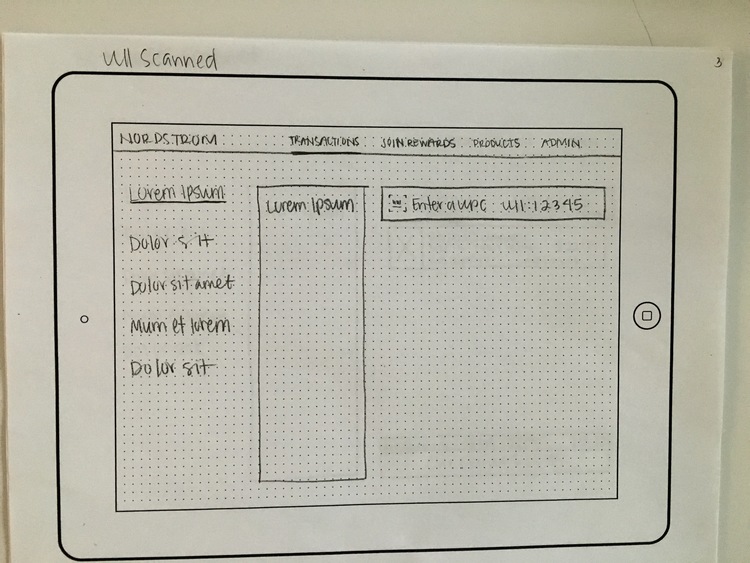 UII Scanned
3
NORDSTROM TRANSACTIONS JOIN REWARDS PRODUCTS ADMIN
Lorem Ipsum
Dolor sit
Dolor sit amet
Mum et lorem
Dolor sit
Lorem Ipsum
Enter a UPC UII:12345